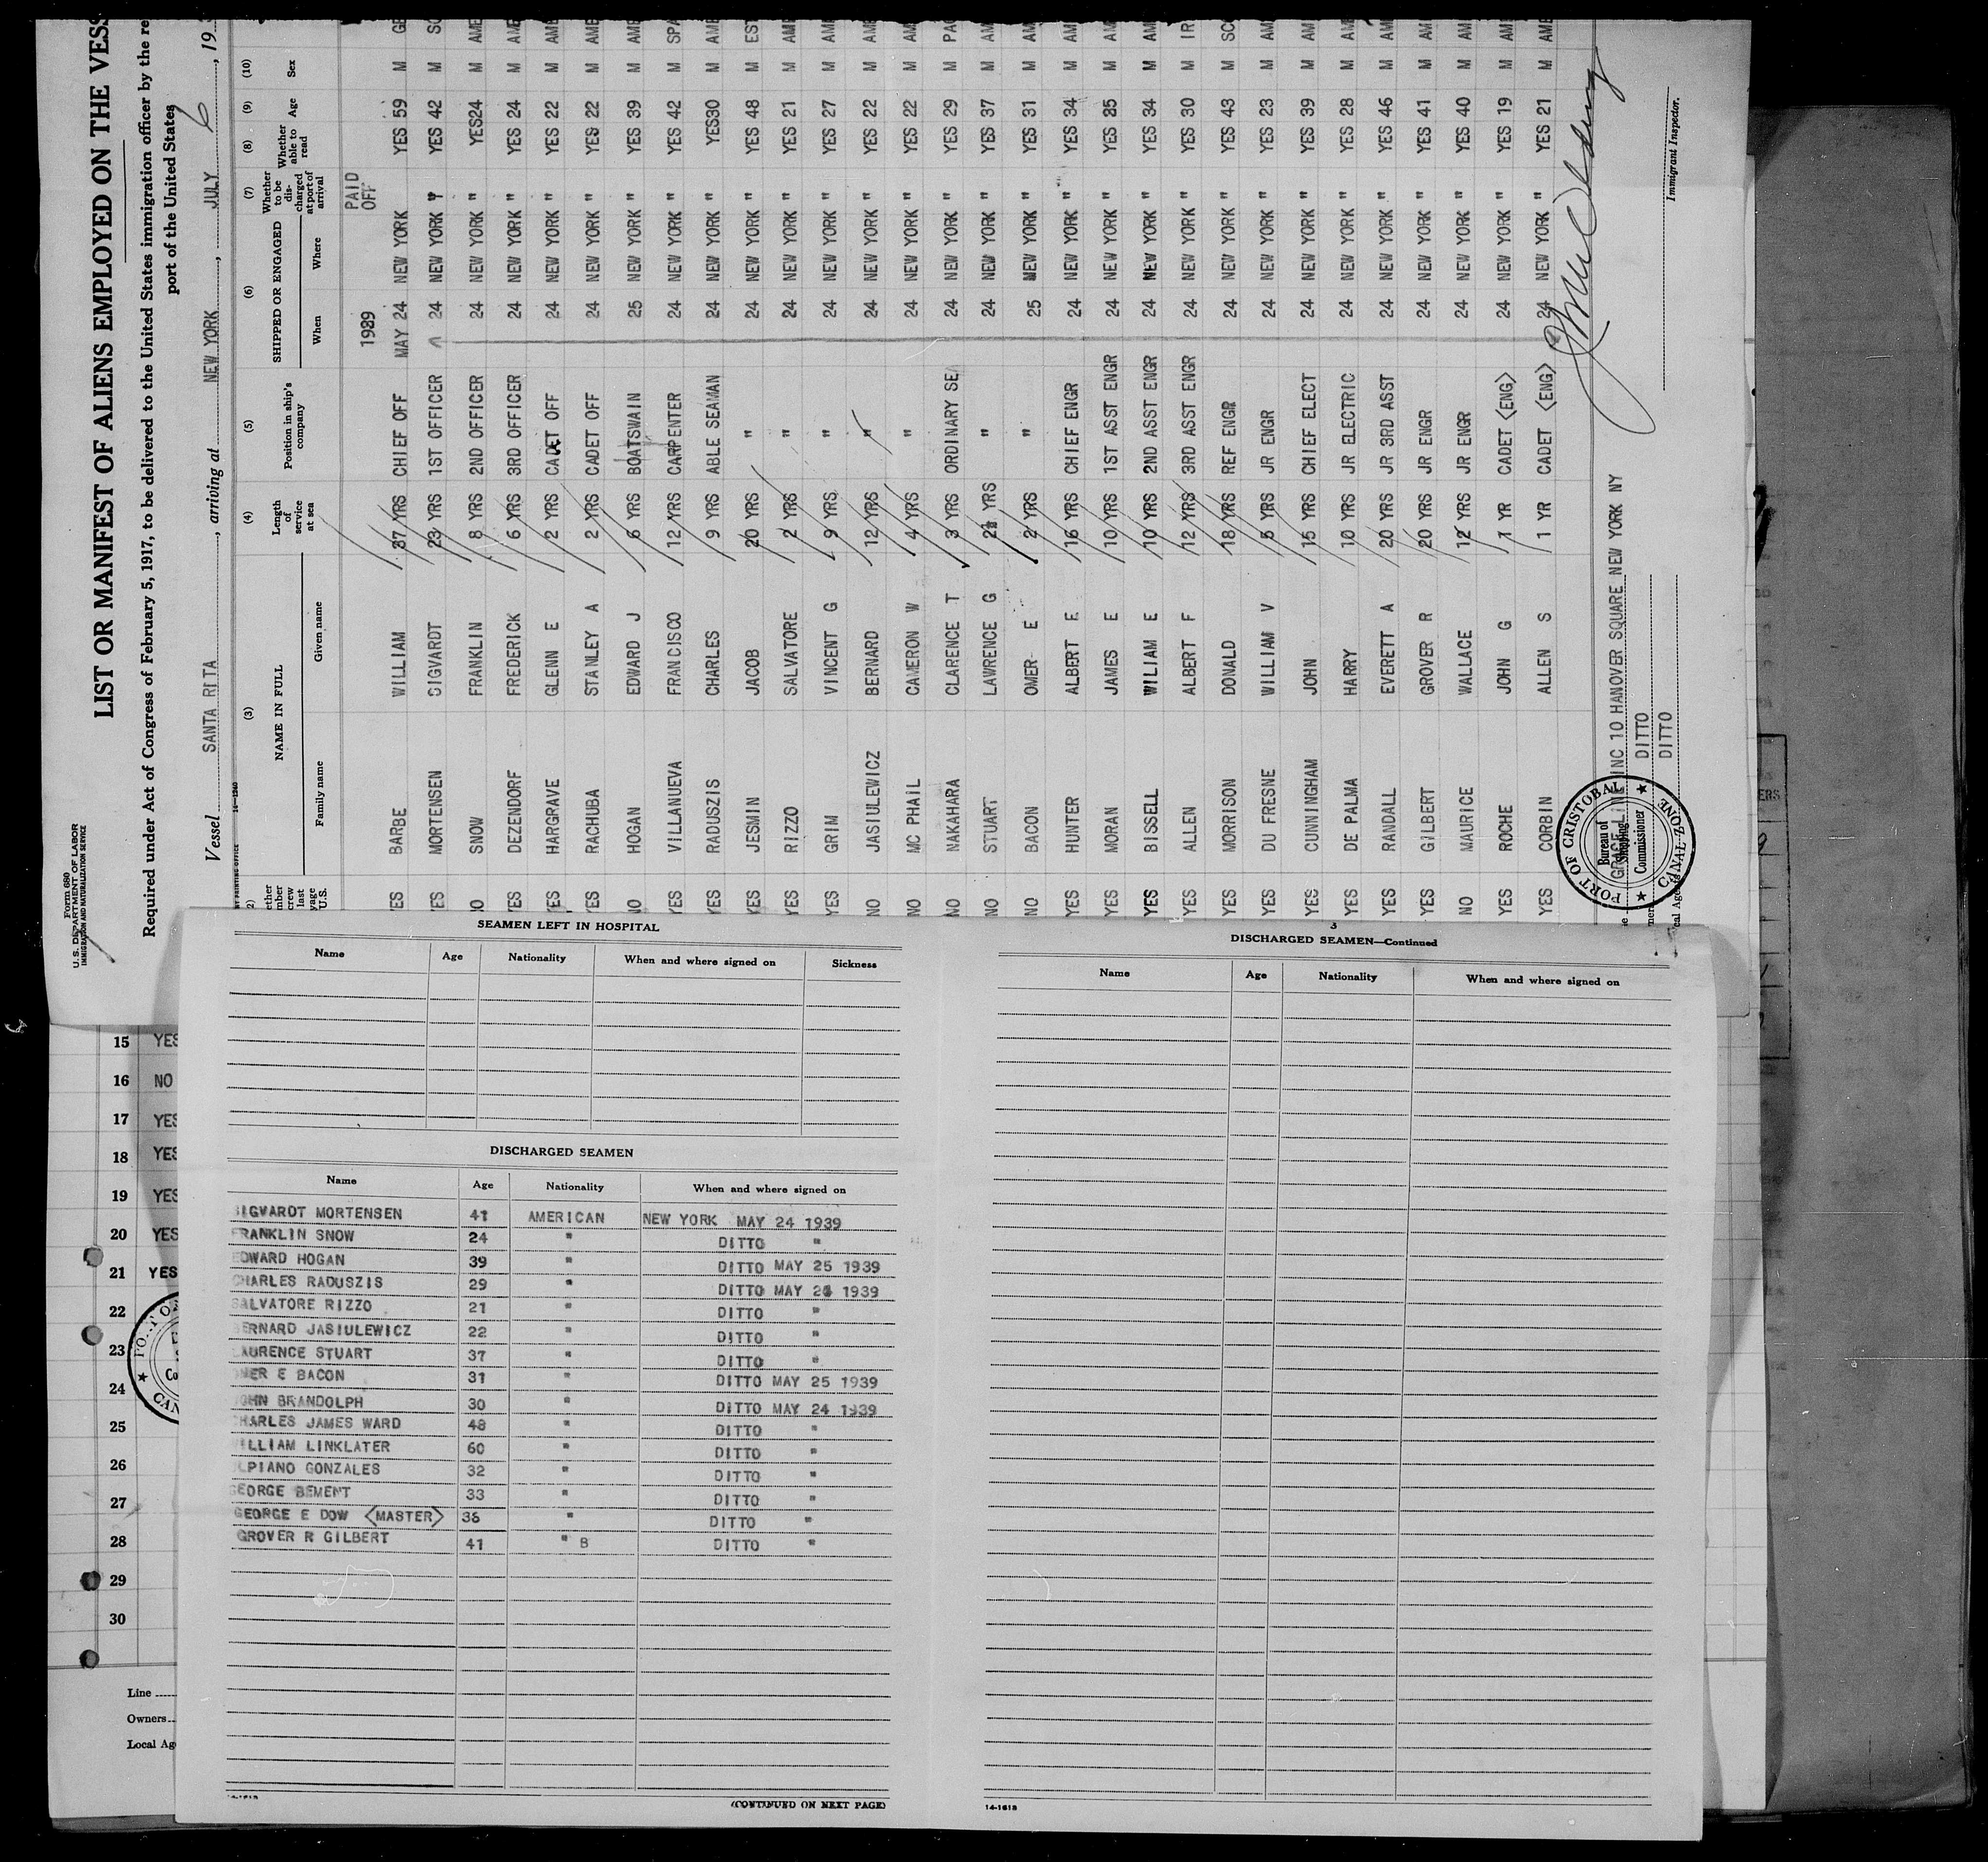 Form 680
U.S. DEPARTMENT OF LABOR
IMMIGRATION AND NATURALIZATION SERVICE
LIST OR MANIFEST OF ALIENS EMPLOYED ON THE VESS
Required under Act of Congress of February 5, 1917, to be delivered to the United States immigration officer by the re
port of the United States
Vessel SANTA RITA, arriving at NEW YORK, JULY 6, 19
(3) (4) (5) (6) (7) (8) (9) (10)
NAME IN FULL Length of service at sea Position in ship's company SHIPPED OR ENGAGED Whether to be discharged at port of arrival Whether able to read Age Sex
Family name Given name When Where
1939 PAID OFF
YES BARBE WILLIAM 37 YRS CHIEF OFF MAY 24 NEW YORK YES 59 M GE
YES MORTENSEN SIGVARDT 23 YRS 1ST OFFICER 24 NEW YORK " YES 42 M SC
NO SNOW FRANKLIN 8 YRS 2ND OFFICER 24 NEW YORK " YES24 M AME
YES DEZENDORF FREDERICK 6 YRS 3RD OFFICER 24 NEW YORK " YES 24 M AME
YES HARGRAVE GLENN E 2 YRS CADET OFF 24 NEW YORK " YES 22 M AME
YES RACHUBA STANLEY A 2 YRS CADET OFF 24 NEW YORK " YES 22 M AME
NO HOGAN EDWARD J 6 YRS BOATSWAIN 25 NEW YORK " YES 39 M AME
YES VILLANUEVA FRANCISCO 12 YRS CARPENTER 24 NEW YORK " YES 42 M SPA
YES RADUSZIS CHARLES 9 YRS ABLE SEAMAN 24 NEW YORK " YES30 M AME
YES JESMIN JACOB 20 YRS " 24 NEW YORK " YES 48 M EST
YES RIZZO SALVATORE 2 YRS " 24 NEW YORK " YES 21 M AME
YES GRIM VINCENT G 9 YRS " 24 NEW YORK " YES 27 M AME
NO JASIULEWICZ BERNARD 12 YRS " 24 NEW YORK " YES 22 M AM
NO MC PHAIL CAMERON W 4 YRS " 24 NEW YORK " YES 22 M AM
NO NAKAHARA CLARENCE T 3 YRS ORDINARY SEA 24 NEW YORK " YES 29 M PAC
NO STUART LAWRENCE G YRS " 24 NEW YORK " YES 37 M AM
NO BACON OMER E 2 YRS " 25 NEW YORK " YES 31 M AM
YES HUNTER ALBERT E 16 YRS CHIEF ENGR 24 NEW YORK " YES 34 M AM
YES MORAN JAMES E 10 YRS 1ST ASST ENGR 24 NEW YORK " YES 35 M AM
YES BISSELL WILIAM E 10 YRS 2ND ASST ENGR 24 NEW YORK " YES 34 M AM
YES ALLEN ALBERT F 12 YRS 3RD ASST ENGR 24 NEW YORK " YES 30 M IR
YES MORRISON DONALD 18 YRS REF ENGR 24 NEW YORK " YES 43 M SC
YES DU FRESNE WILLIAM V 5 YRS JR ENGR 24 NEW YORK " YES 23 M AM
YES CUNNINGHAM JOHN 15 YRS CHIEF ELECT 24 NEW YORK " YES 39 M AM
YES DE PALMA HARRY 10 YRS JR ELECTRIC 24 NEW YORK " YES 28 M AME
YES RANDALL EVERETT A 20 YRS JR 3RD ASST 24 NEW YORK " YES 46 M AM
YES GILBERT GROVER R 20 YRS JR ENGR 24 NEW YORK " YES 41 M AM
NO MAURICE WALLACE 12 YRS JR ENGR 24 NEW YORK " YES 40 M AM
YES ROCHE JOHN G 1 YR CADET <ENG> 24 NEW YORK " YES 19 M AME
YES CORBIN ALLEN S 1 YR CADET <ENG> 24 NEW YORK " YES 21 M AME
GRACE LINE INC 10 HANOVER SQUARE NEW YORK NY
DITTO
DITTO
Immigrant Inspector.
PORT OF CRISTOBAL
Bureau of Shipping
Commissioner
CANAL ZONE
15 YES
16 NO
17 YES
18 YES
19 YES
20 YES
21 YES
22
23
24
25
26
27
28
29
30
Line
Owners
Local Ag
SEAMEN LEFT IN HOSPITAL
Name Age Nationality When and where signed on Sickness
DISCHARGED SEAMEN
Name Age Nationality When and where signed on
SIGVARDT MORTENSEN 41 AMERICAN NEW YORK MAY 24 1939
FRANKLIN SNOW 24 " DITTO "
EDWARD HOGAN 39 " DITTO MAY 25 1939
CHARLES RADUSZIS 29 " DITTO MAY 24 1939
SALVATORE RIZZO 21 " DITTO "
BERNARD JASIULEWICZ 22 " DITTO "
LAURENCE STUART 37 " DITTO "
OMER E BACON 31 " DITTO MAY 25 1939
JOHN BRANDOLPH 30 " DITTO MAY 24 1939
CHARLES JAMES WARD 48 " DITTO "
WILLIAM LINKLATER 60 " DITTO "
LPIANO GONZALES 32 " DITTO "
GEORGE BEMENT 33 " DITTO "
GEORGE E DOW <MASTER> 36 " DITTO "
GROVER R GILBERT 41 " B DITTO "
(CONTINUED ON NEXT PAGE)
3
DISCHARGED SEAMEN—Continued
Name Age Nationality When and where signed on
14-1618